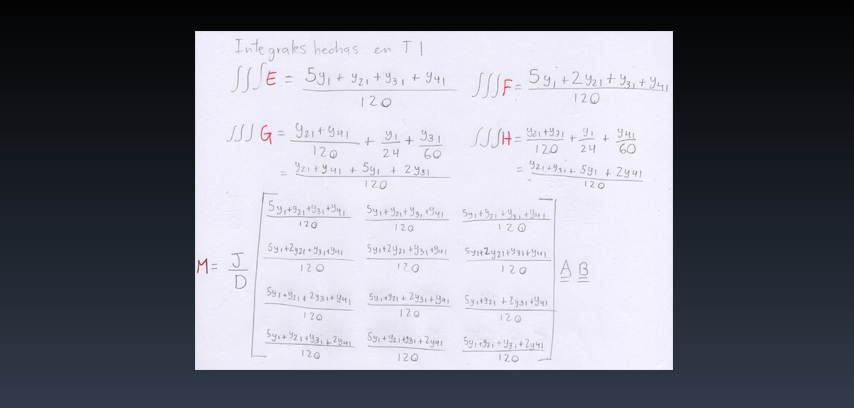 Integrales hechas en T1
∭E = (5y₁ + y₂₁ + y₃₁ + y₄₁)/120    ∭F = (5y₁ + 2y₂₁ + y₃₁ + y₄₁)/120
∭G = (y₂₁ + y₄₁)/120 + y₁/24 + y₃₁/60    ∭H = (y₂₁ + y₃₁)/120 + y₁/24 + y₄₁/60
= (y₂₁ + y₄₁ + 5y₁ + 2y₃₁)/120    = (y₂₁ + y₃₁ + 5y₁ + 2y₄₁)/120
(5y₁+y₂₁+y₃₁+y₄₁)/120    (5y₁+y₂₁+y₃₁+y₄₁)/120    (5y₁+y₂₁+y₃₁+y₄₁)/120
M = J/D    (5y₁+2y₂₁+y₃₁+y₄₁)/120    (5y₁+2y₂₁+y₃₁+y₄₁)/120    (5y₁+2y₂₁+y₃₁+y₄₁)/120    A B
(5y₁+y₂₁+2y₃₁+y₄₁)/120    (5y₁+y₂₁+2y₃₁+y₄₁)/120    (5y₁+y₂₁+2y₃₁+y₄₁)/120
(5y₁+y₂₁+y₃₁+2y₄₁)/120    (5y₁+y₂₁+y₃₁+2y₄₁)/120    (5y₁+y₂₁+y₃₁+2y₄₁)/120